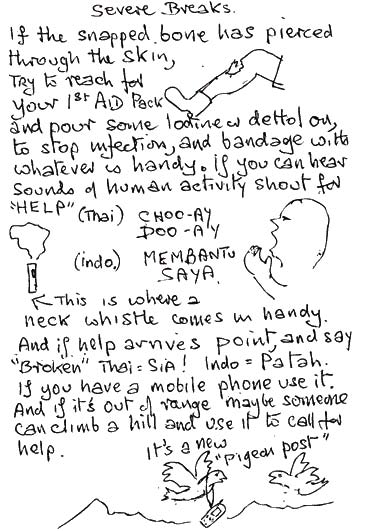 Severe Breaks.
If the snapped bone has pierced
through the skin,
Try to reach for
your 1st AID Pack
and pour some Iodine or dettol on,
to stop infection, and bandage with
whatever is handy. If you can hear
sounds of human activity shout for
"HELP" (Thai) CHOO-AY
DOO-AY
(indo.) MEMBANTU
SAYA.
This is where a
neck whistle comes in handy.
And if help arrives point, and say
"Broken" Thai = SIA! Indo = Patah.
If you have a mobile phone use it.
And if it's out of range maybe someone
can climb a hill and use it to call for
help.
It's a new
"pigeon post"